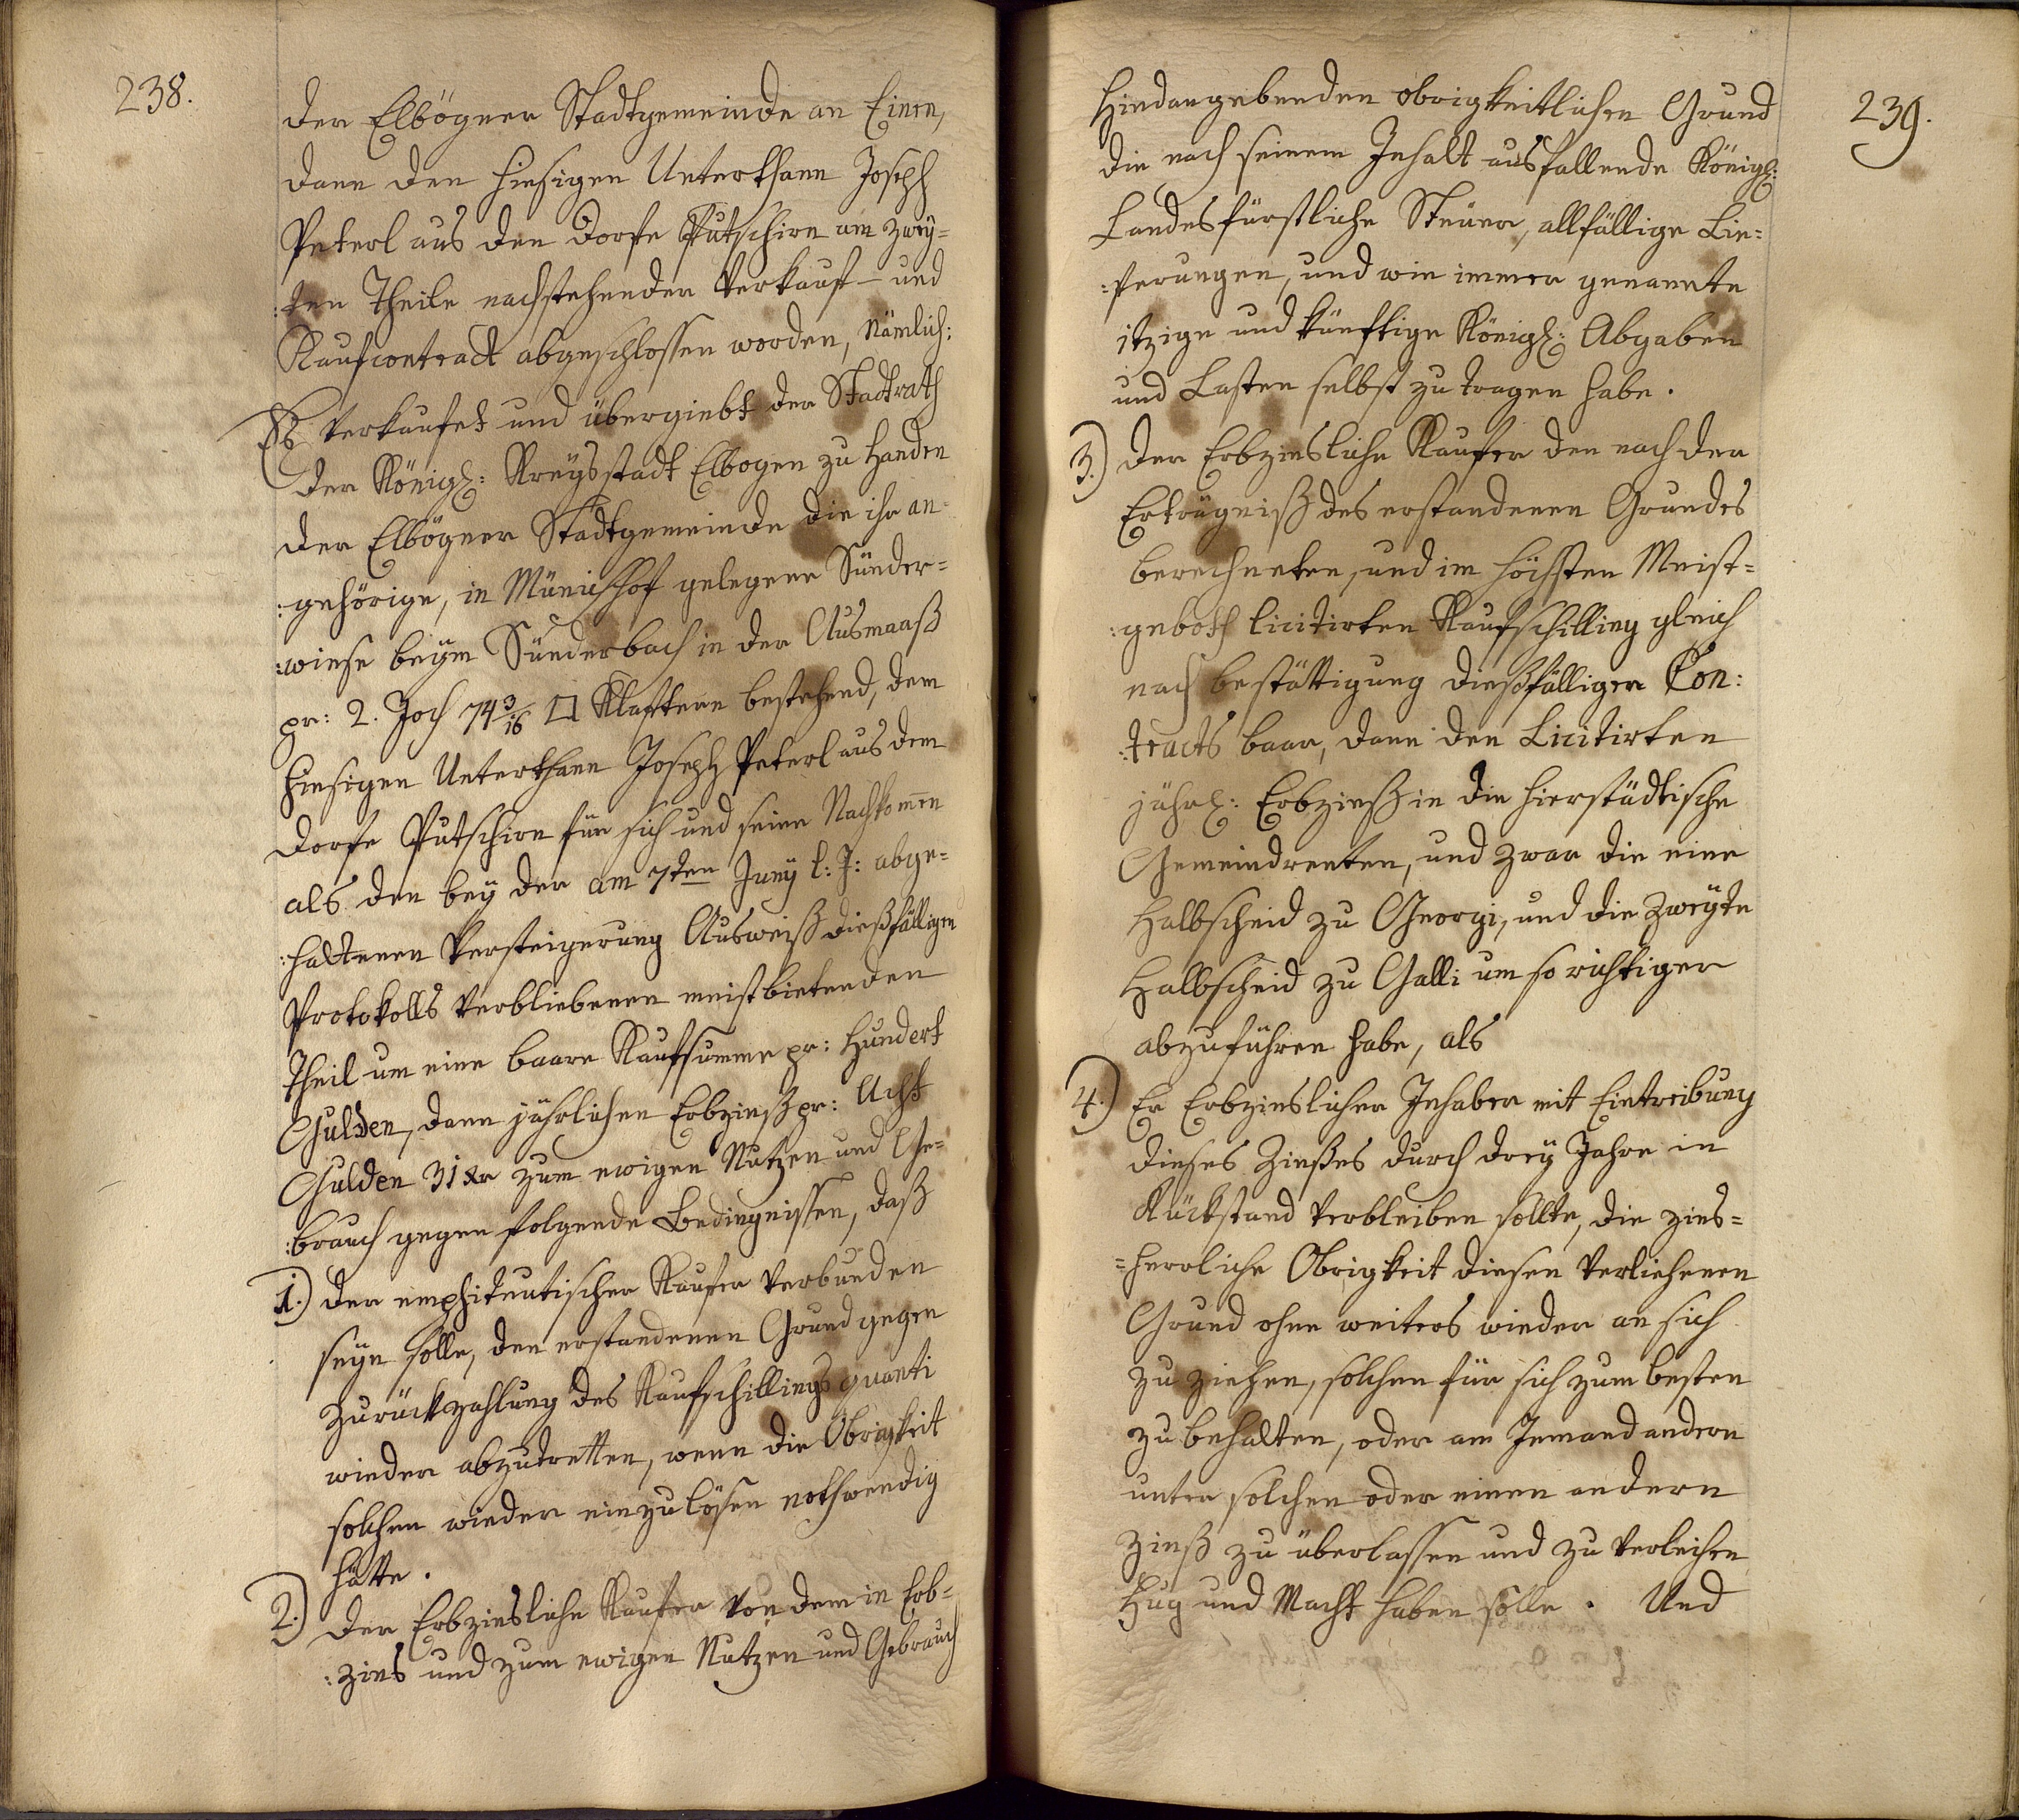 238.
der Elbögner Stadtgemeinde an Einen,
dann den hiesigen Unterthann Joseph
Peterl aus den Dorfe Putschirn am zwey=
:ten Theile nachstehender Verkauf- und
Kaufcontract abgeschlossen worden, nämlich:
Es verkaufet und übergiebt der Stadtrath
der Königl: Kreysstadt Elbogen zu Handen
der Elbögner Stadtgemeinde die ihr an=
:gehörige, in Münichhof gelegene Sünder=
:wiese beym Sünderbach in der Ausmaaß
pr: 2. Joch 74 3/16 □ Klaftern bestehend, dem
hiesigen Unterthann Joseph Peterl aus dem
Dorfe Putschirn für sich und seine Nachkom̅en
als den bey der am 7ten Juny l: J: abge=
:haltenen Versteigerung Ausweiß dießfälligen
Protokolls verbliebenen meistbietenden
Theil um eine baare Kaufsumme pr: Hundert
Gulden, dann jährlichen Erbzinß pr: Acht
Gulden 31 xr zum ewigen Nutzen und Ge=
:brauch gegen folgende Bedingnissen, daß
1.) der emphiteutischer Kaufer verbunden
seyn solle, den erstandenen Grund gegen
Zurückzahlung des Kaufschillings quanti
wieder abzutretten, wenn die Obrigkeit
solchen wieder einzulösen nothwendig
hätte.
2.) Der Erbzinsliche Kaufer von dem in Erb=
:zins und zum ewigen Nutzen und Gebrauch
239.
Hindangebenden obrigkeitlichen Grund
die nach seinem Inhalt ausfallende Königl:
Landesfürstliche Steuer, allfällige Lie=
:ferungen, und wie immer genannte
itzige und künftige Königl: Abgaben
und Lasten selbst zu tragen habe.
3.) Der Erbzinsliche Kaufer den nach der
Erträgniß des erstandenen Grundes
berechneten, und im höchsten Meist=
:geboth licitirten Kaufschilling gleich
nach bestättigung dießfälliger Con:
:tracts baar, dann den Licitirten
jährl: Erbzinß in die hierstädtische
Gemeindrenten, und zwar die eine
Halbscheid zu Georgi, und die Zweyte
Halbscheid zu Galli um so richtiger
abzuführen habe, als
4.) Er Erbzinslicher Inhaber mit Eintreibung
dieses Zinßes durch drey Jahre in
Rückstand verbleiben sollte, die zins=
=herrliche Obrigkeit diesen verliehenen
Grund ohne weiters wieder an sich
zu ziehen, solchen für sich zum besten
zu behalten, oder am Jemand andern
unter solchen oder einen andern
Zinß zu überlassen und zu verleihen
Hug und Macht haben solle. Und